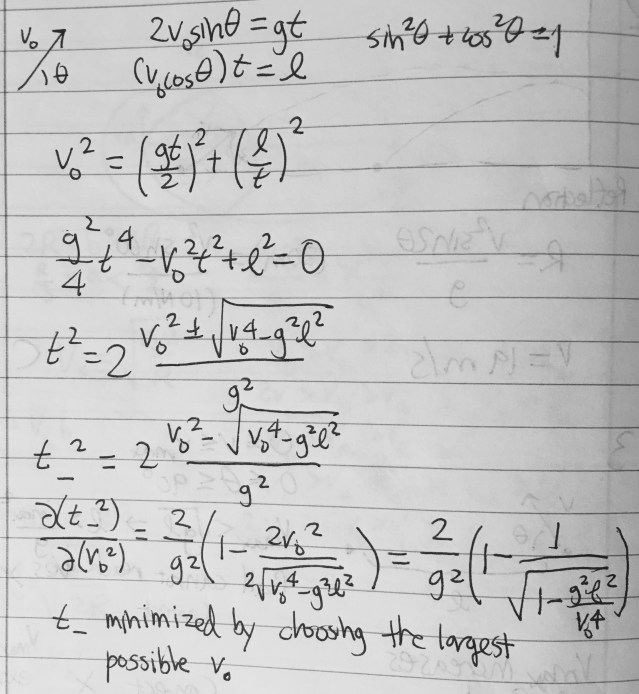 v₀ θ 2v₀sinθ = gt sin²θ + cos²θ = 1
(v₀cosθ)t = ℓ
v₀² = (gt/2)² + (ℓ/t)²
g²/4 t⁴ - v₀²t² + ℓ² = 0
t² = 2 (v₀² ± √(v₀⁴ - g²ℓ²))/g²
t₋² = 2 (v₀² - √(v₀⁴ - g²ℓ²))/g²
∂(t₋²)/∂(v₀²) = 2/g² (1 - 2v₀²/(2√(v₀⁴ - g²ℓ²))) = 2/g² (1 - 1/√(1 - g²ℓ²/v₀⁴))
t₋ minimized by choosing the largest
possible v₀
Reflection
R = v²sin2θ/g
v = 19 m/s